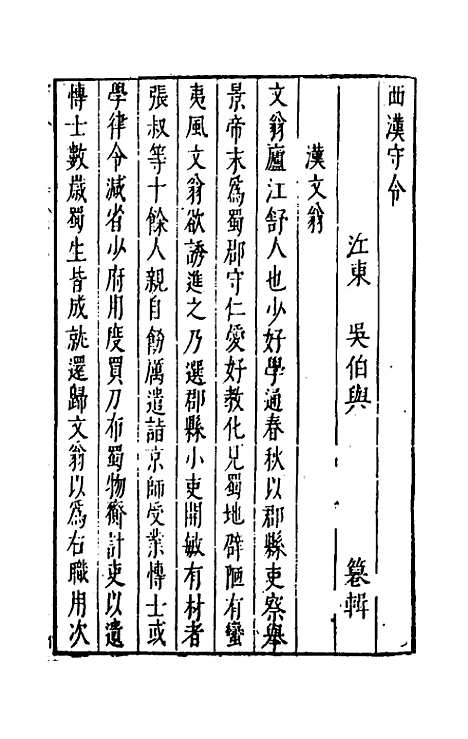 西漢守令
江東 吳伯與 纂輯
漢文翁
文翁廬江舒人也少好學通春秋以郡縣吏察舉
景帝末爲蜀郡守仁愛好教化見蜀地辟陋有蠻
夷風文翁欲誘進之乃選郡縣小吏開敏有材者
張叔等十餘人親自飭厲遣詣京師受業博士或
學律令減省少府用度買刀布蜀物齎計吏以遺
博士數歲蜀生皆成就還歸文翁以爲右職用次